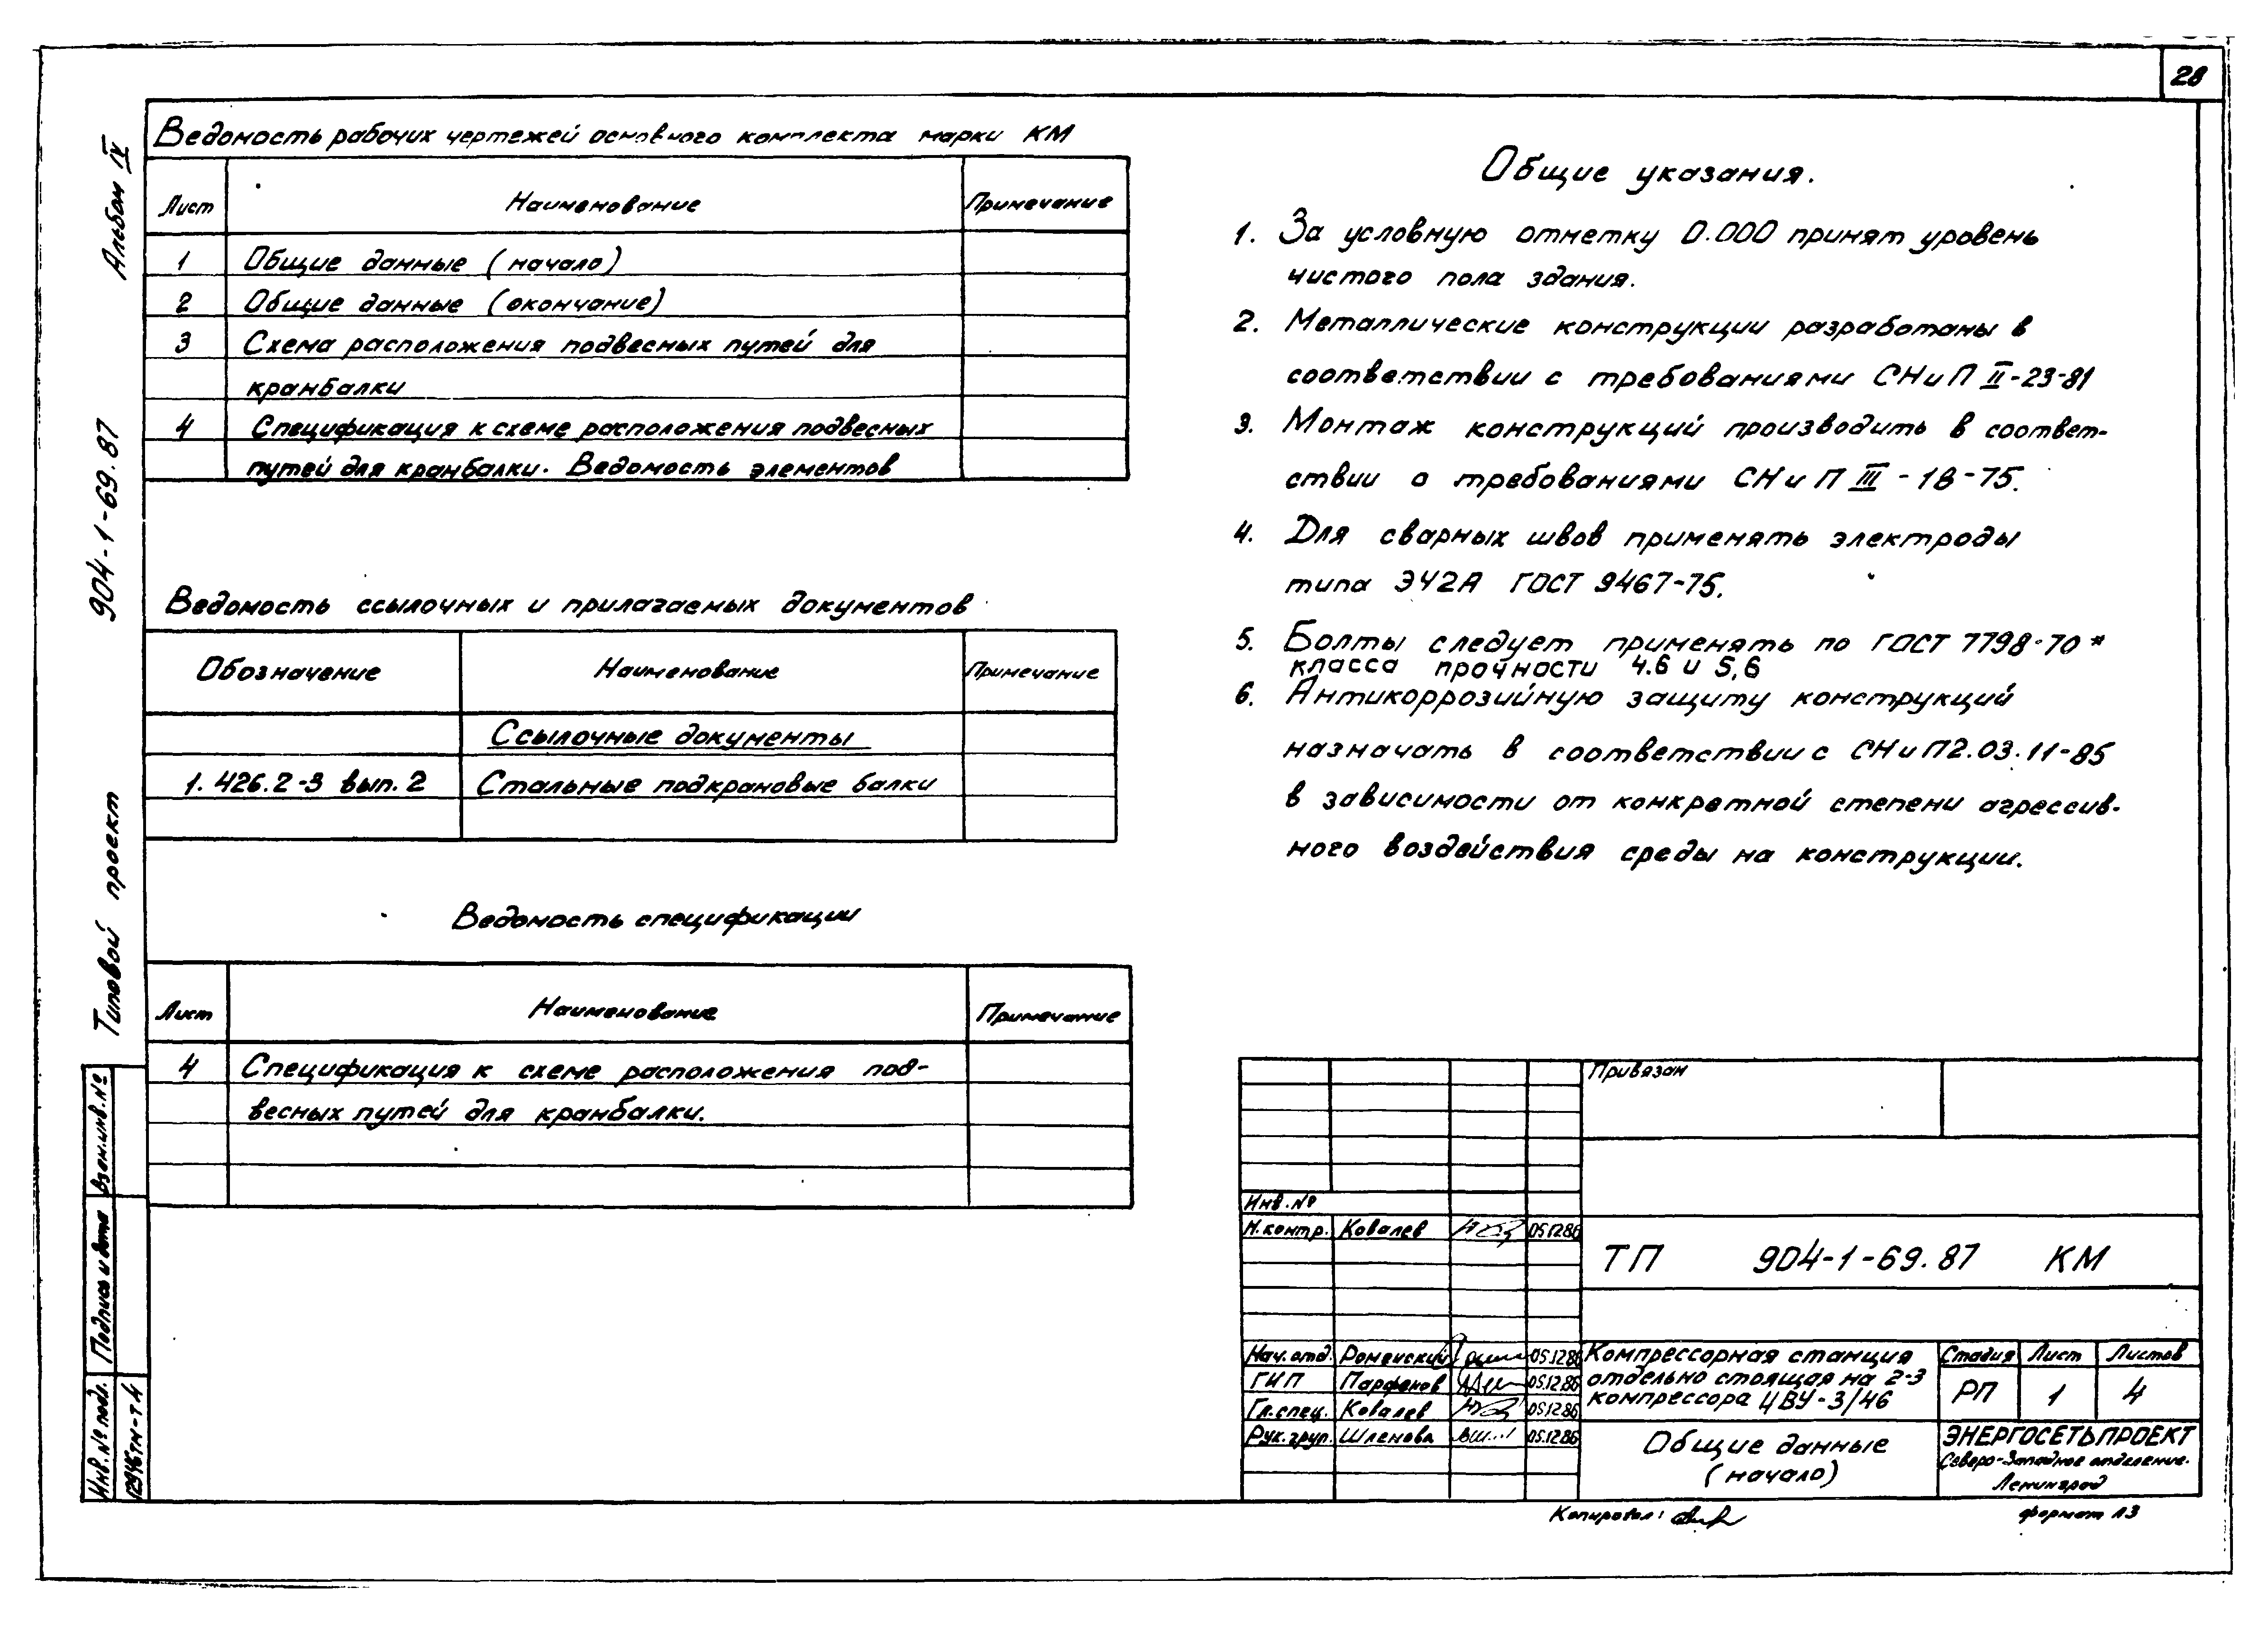 28
Альбом IV
904-1-69.87
Типовой проект
Ведомость рабочих чертежей основного комплекта марки КМ
Лист Наименование Примечание
1 Общие данные (начало)
2 Общие данные (окончание)
3 Схема расположения подвесных путей для
кранбалки
4 Спецификация к схеме расположения подвесных
путей для кранбалки. Ведомость элементов
Ведомость ссылочных и прилагаемых документов
Обозначение Наименование Примечание
Ссылочные документы
1.426.2-3 вып.2 Стальные подкрановые балки
Ведомость спецификации
Лист Наименование Примечание
4 Спецификация к схеме расположения под-
весных путей для кранбалки.
Общие указания.
1. За условную отметку 0.000 принят уровень
чистого пола здания.
2. Металлические конструкции разработаны в
соответствии с требованиями СНиП II-23-81
3. Монтаж конструкций производить в соответ-
ствии с требованиями СНиП III-18-75.
4. Для сварных швов применять электроды
типа Э42А ГОСТ 9467-75.
5. Болты следует применять по ГОСТ 7798-70*
класса прочности 4.6 и 5,6
6. Антикоррозийную защиту конструкций
назначать в соответствии с СНиП2.03.11-85
в зависимости от конкретной степени агрессив-
ного воздействия среды на конструкции.
Привязан
Инв.№
Н.контр. Ковалев 05.12.86
ТП 904-1-69.87 КМ
Нач.отд. Роменский 05.12.86
ГИП Парфенов 05.12.86
Гл.спец. Ковалев 05.12.86
Рук.груп. Шленова 05.12.86
Компрессорная станция
отдельно стоящая на 2-3
компрессора ЦВУ-3/46
Стадия Лист Листов
РП 1 4
Общие данные
(начало)
ЭНЕРГОСЕТЬПРОЕКТ
Северо-Западное отделение.
Ленинград
Копировал:
формат А3
Взам.инв.№
Подпись и дата
Инв.№ подл.
12946тм-т.4